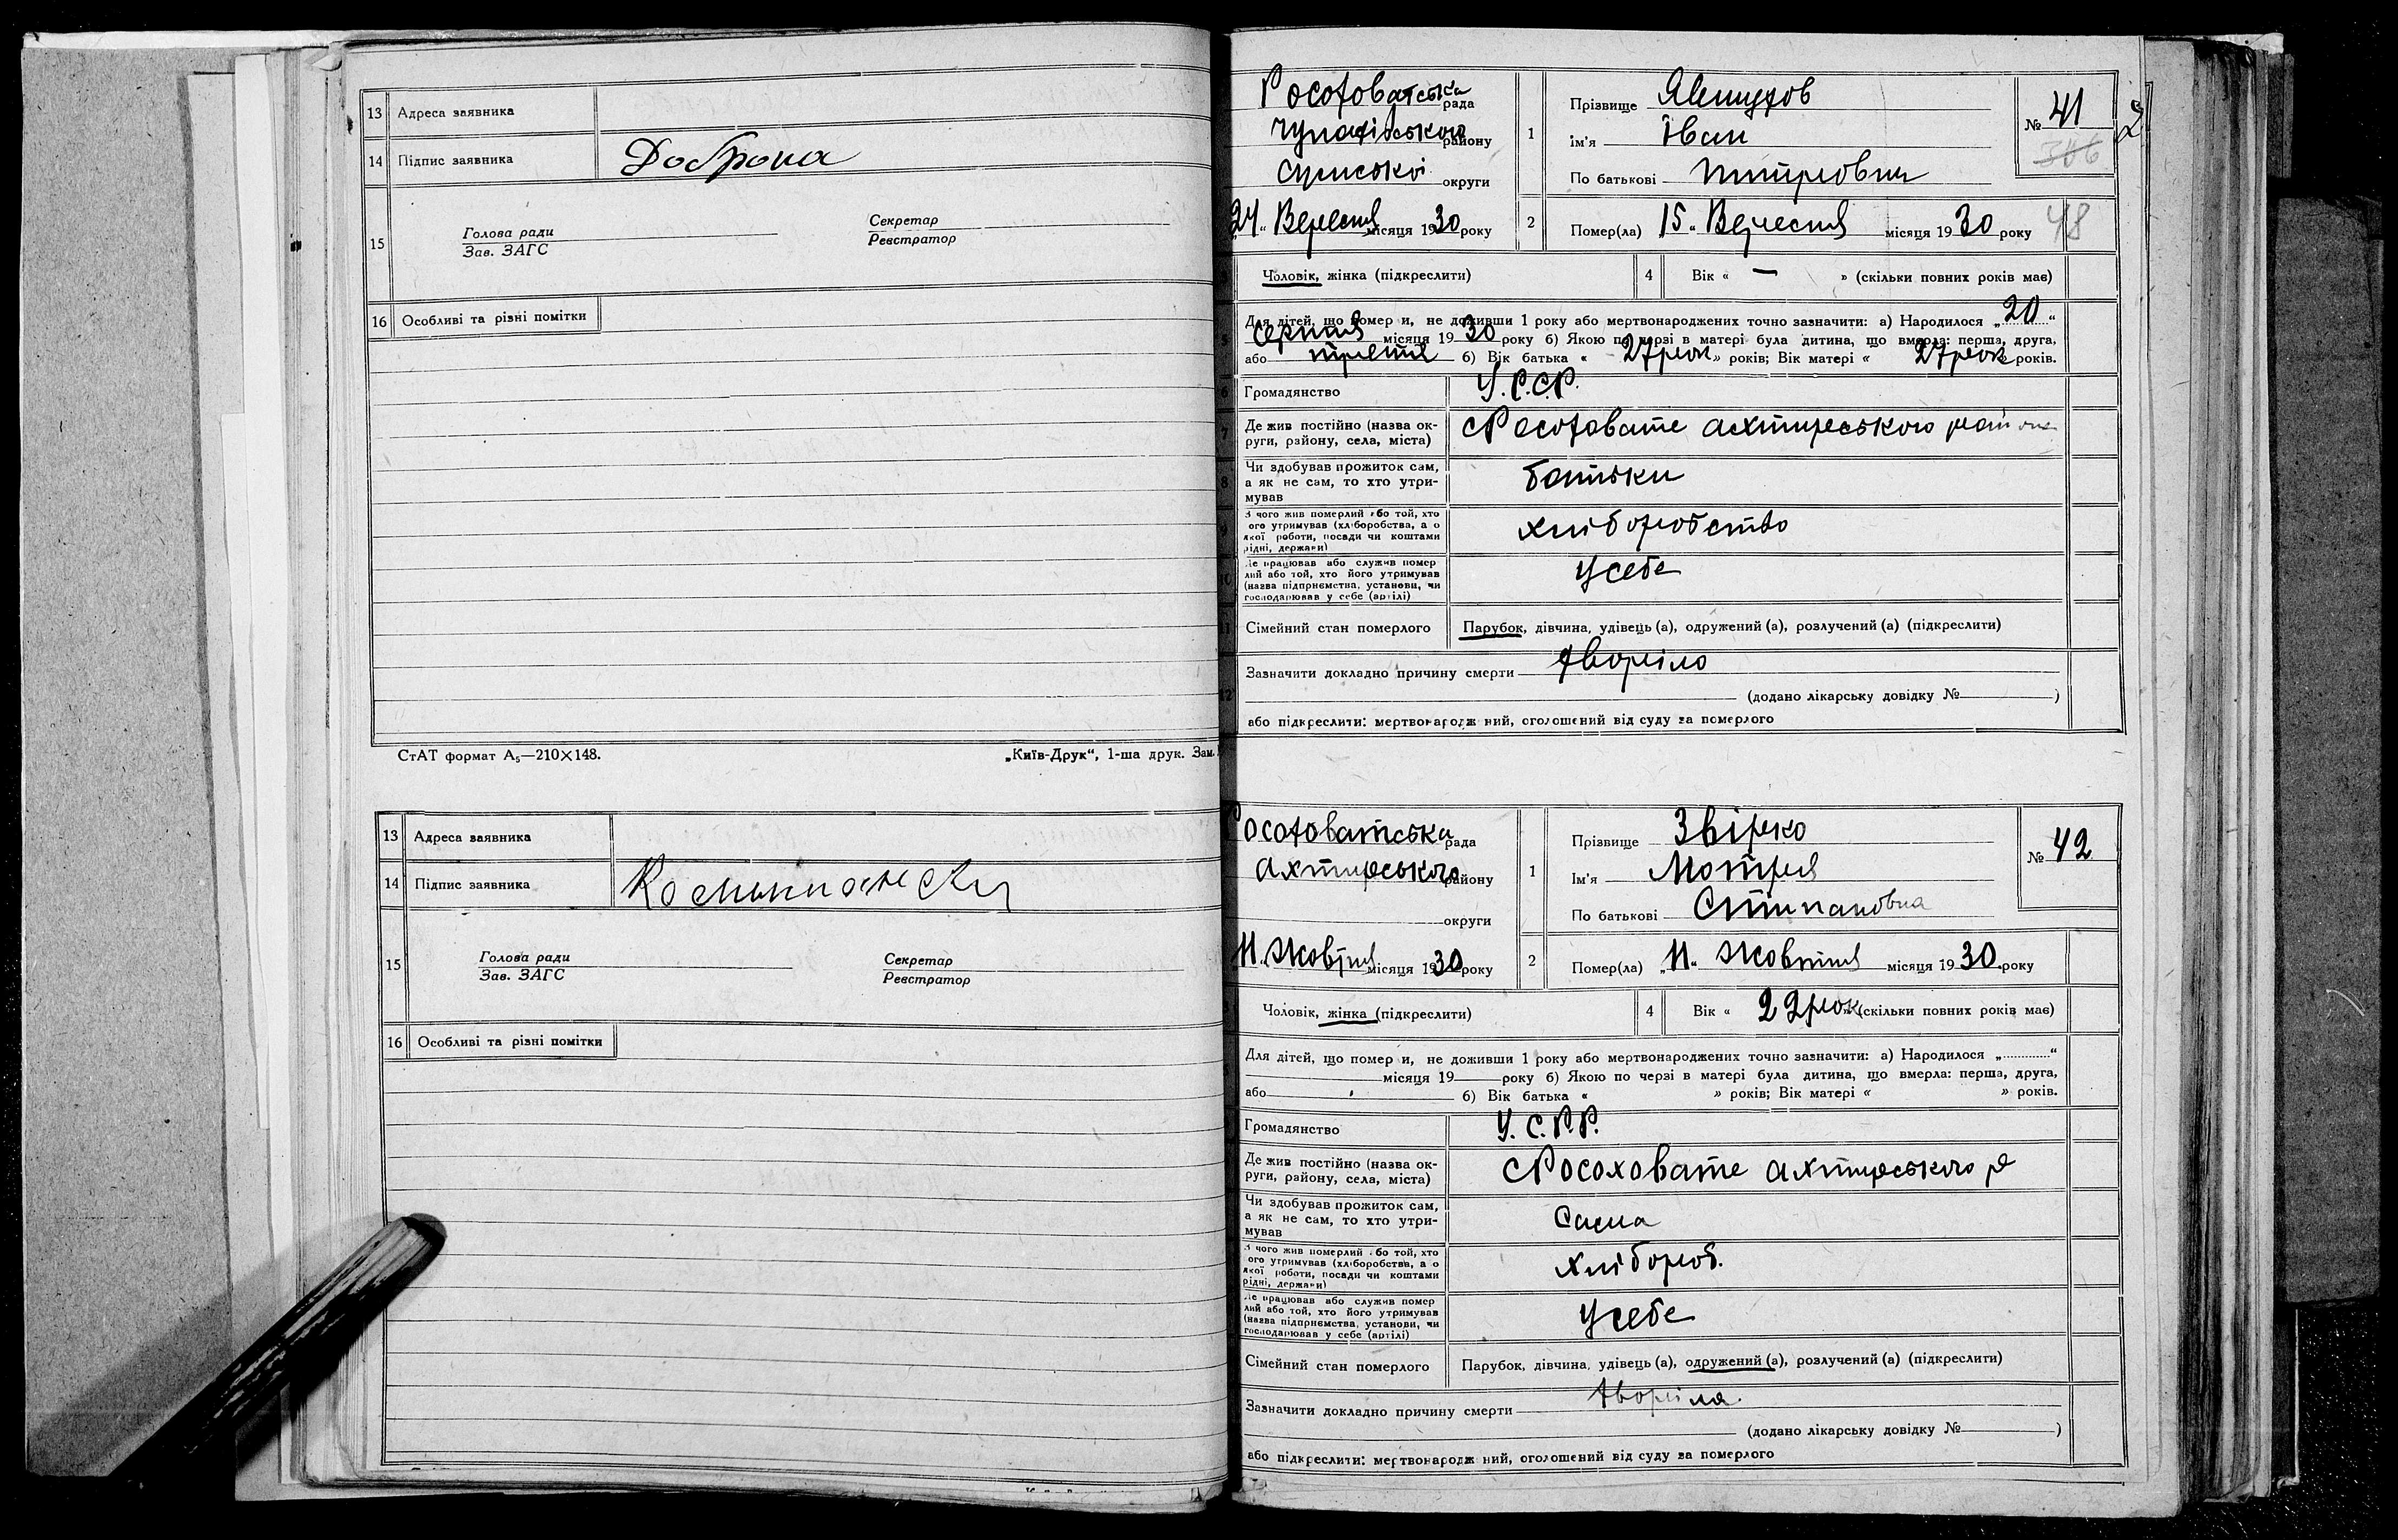 13 Адреса заявника
14 Підпис заявника Доброна
15 Голова ради Зав. ЗАГС Секретар Реєстратор
16 Особливі та різні помітки
СтАТ формат А₅—210×148. „Київ-Друк“, 1-ша друк. Зам.
13 Адреса заявника
14 Підпис заявника
15 Голова ради Зав. ЗАГС Секретар Реєстратор
16 Особливі та різні помітки
Рософоватська рада
району
Сумської округи
24 Вересня місяця 1930 року
1 Прізвище
Ім'я Іван
По батькові
№ 41
306
2 Помер(ла) 15 Вересня місяця 1930 року
48
Чоловік, жінка (підкреслити)
4 Вік « — » (скільки повних років має)
Для дітей, що помер и, не доживши 1 року або мертвонароджених точно зазначити: а) Народилося „20“
Серпня місяця 1930 року б) Якою по черзі в матері була дитина, що вмерла: перша, друга,
або третя б) Вік батька « 27 рок » років; Вік матері « 27 рок » років.
6 Громадянство У.Р.С.Р.
7 Де жив постійно (назва округи, району, села, міста) с Рософовате ахтирського району
8 Чи здобував прожиток сам, а як не сам, то хто утримував батьки
9 З чого жив померлий або той, хто ого утримував (хліборобства, а о якої роботи, посади чи коштами рідні, держави) хліборобство
10 Де працював або служив помер лий або той, хто його утримував (назва підприємства, установи, чи господарював у себе (артілі) усебе
11 Сімейний стан померлого Парубок, дівчина, удівець (а), одружений (а), розлучений (а) (підкреслити)
12 Зазначити докладно причину смерти
(додано лікарську довідку № )
або підкреслити: мертвонародж ний, оголошений від суду за померлого
Рософоватська рада
Ахтирського району
округи
11 Жовтня місяця 1930 року
1 Прізвище Звірко
Ім'я Мотря
По батькові Стипановна
№ 42
2 Помер(ла) „11“ Жовтня місяця 1930 року
Чоловік, жінка (підкреслити)
4 Вік « 22 рок » (скільки повних років має)
Для дітей, що помер и, не доживши 1 року або мертвонароджених точно зазначити: а) Народилося „ “
місяця 19 року б) Якою по черзі в матері була дитина, що вмерла: перша, друга,
або б) Вік батька « » років; Вік матері « » років.
Громадянство У.С.Р.Р.
Де жив постійно (назва округи, району, села, міста) с Росоховате ахтирського р
Чи здобував прожиток сам, а як не сам, то хто утримував Сама
З чого жив померлий або той, хто ого утримував (хліборобства, а о якої роботи, посади чи коштами рідні, держави) хлібороб.
Де працював або служив помер лий або той, хто його утримував (назва підприємства, установи, чи господарював у себе (артілі) усебе
Сімейний стан померлого Парубок, дівчина, удівець (а), одружений (а), розлучений (а) (підкреслити)
Зазначити докладно причину смерти
(додано лікарську довідку № )
або підкреслити: мертвонародж ний, оголошений від суду за померлого